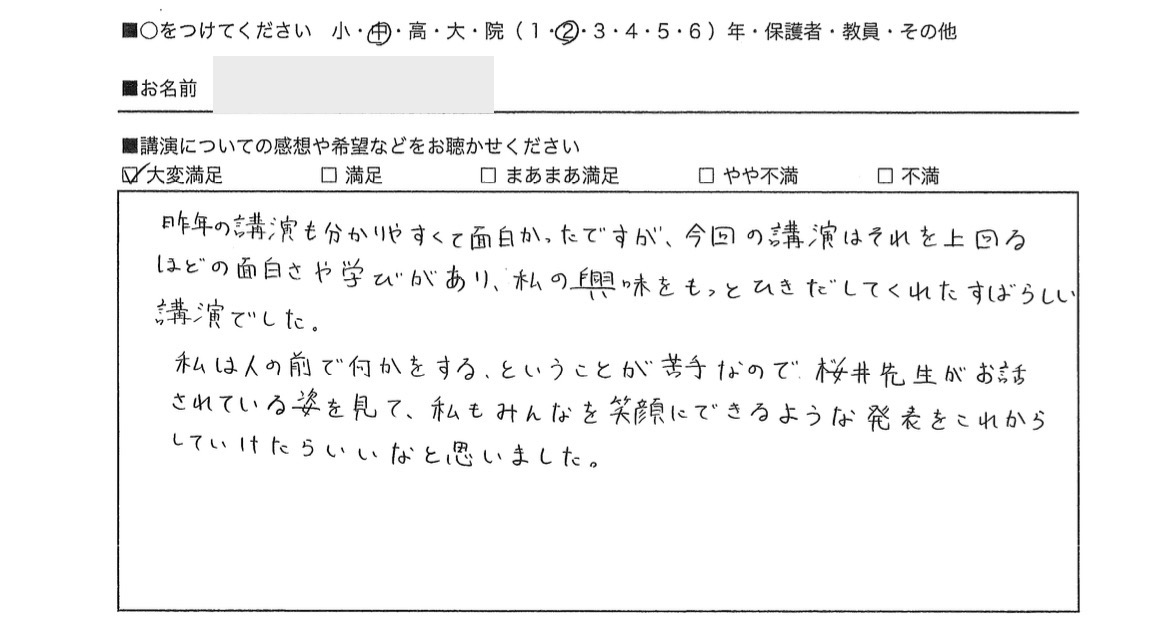 ■○をつけてください 小・中・高・大・院（1・2・3・4・5・6）年・保護者・教員・その他
■お名前
■講演についての感想や希望などをお聴かせください
☑大変満足 □ 満足 □ まあまあ満足 □ やや不満 □ 不満
昨年の講演も分かりやすくて面白かったですが、今回の講演はそれを上回る
ほどの面白さや学びがあり、私の興味をもっとひきだしてくれたすばらしい
講演でした。
私は人の前で何かをする、ということが苦手なので、桜井先生がお話
されている姿を見て、私もみんなを笑顔にできるような発表をこれから
していけたらいいなと思いました。